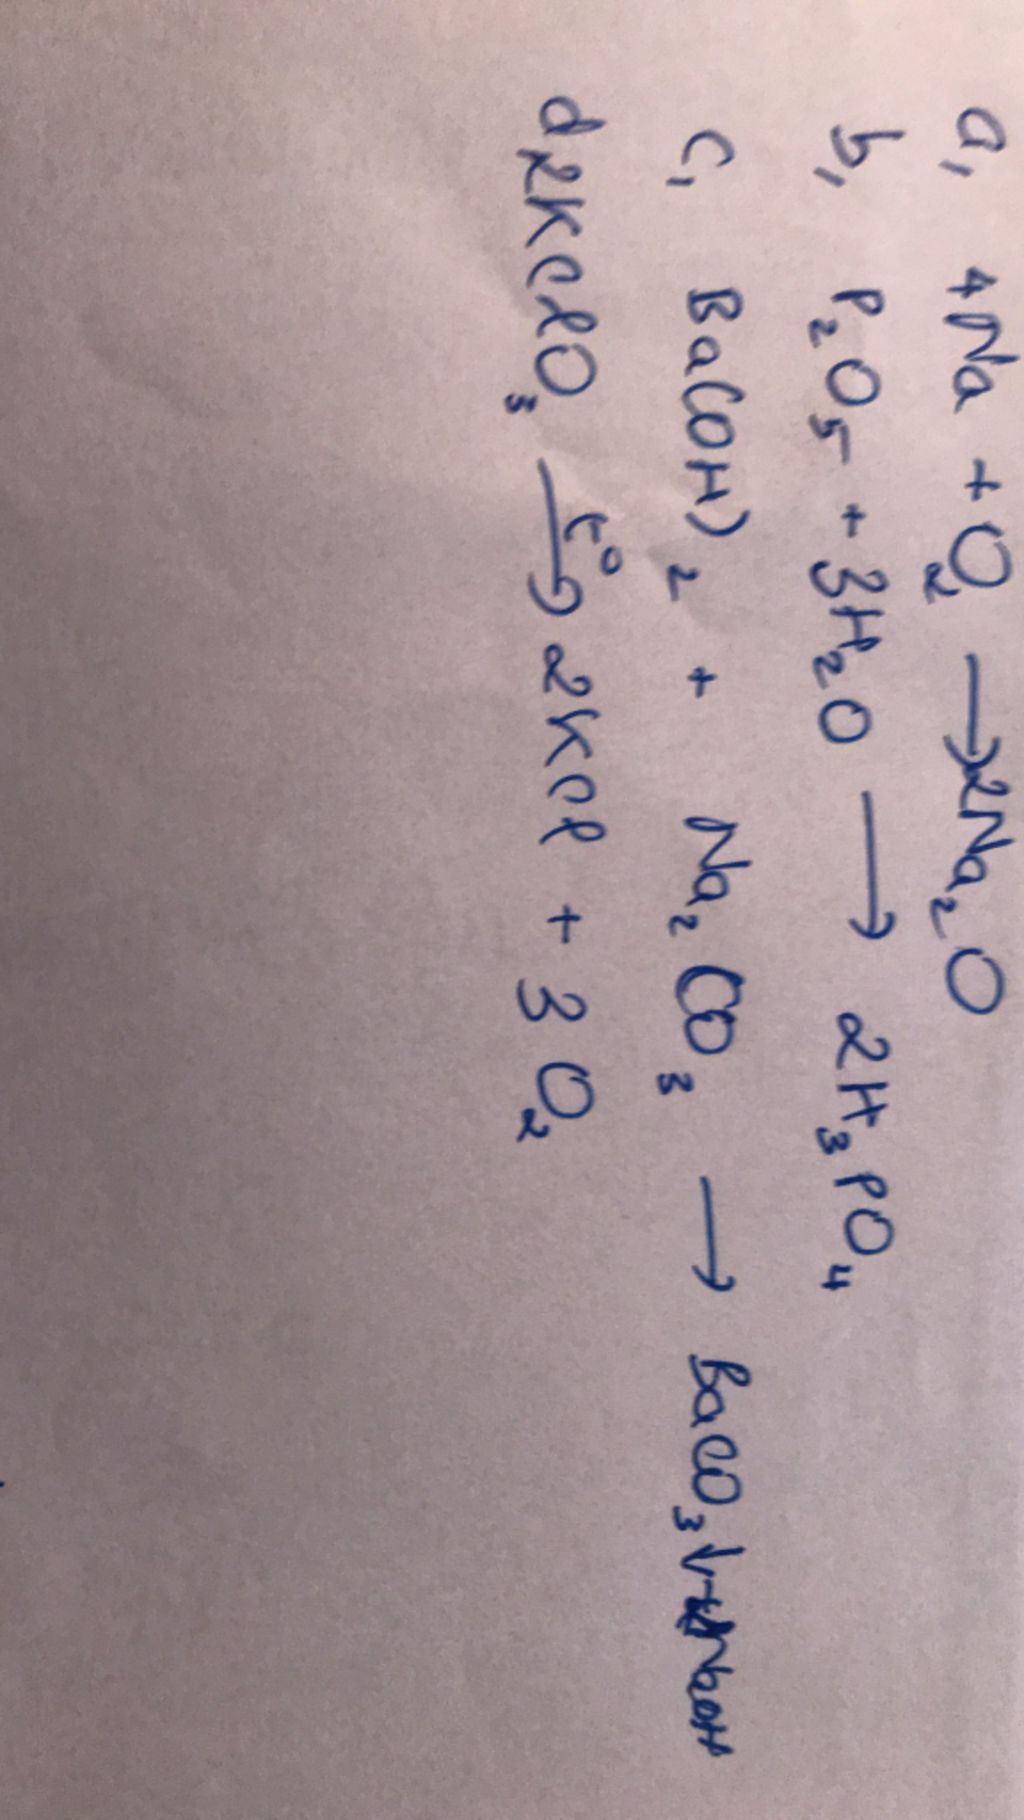 a, 4Na + O₂ → 2Na₂O
b, P₂O₅ + 3H₂O → 2H₃PO₄
c, Ba(OH)₂ + Na₂CO₃ → BaCO₃↓ + NaOH
d, 2KClO₃ –t°→ 2KCl + 3O₂